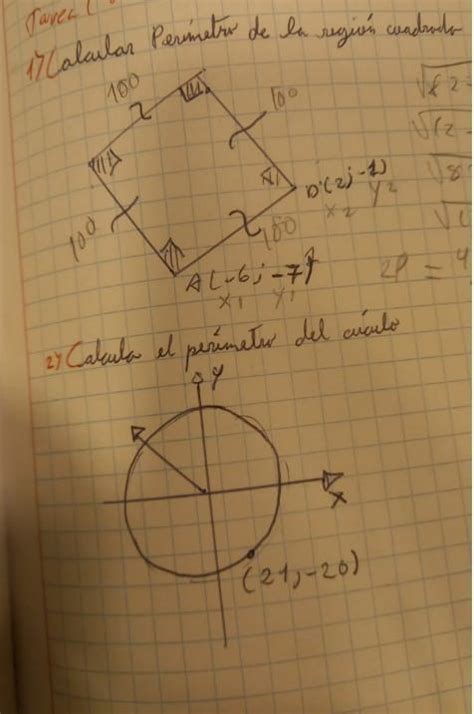 Tarea
1) Calcular Perímetro de la región cuadrada
100
100
D(2; -1)
x2 y2
100
100
A(-6; -7)
x1 y1
2P = 4
2) Calcula el perímetro del círculo
y
x
(21; -20)